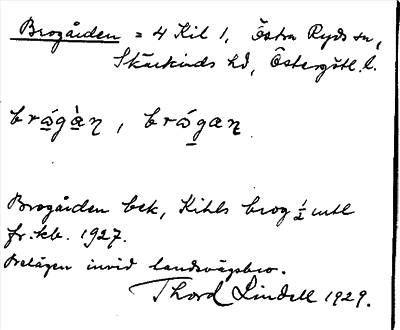 Brogården = 4 Kil 1, Östra Ryds sn,
Skärkinds hd, Östergötl. l.
brógàn, brógan
Brogården bek, Kihls brog ½ mtl
fr. kb. 1927.
Belägen invid landsvägsbro.
Thord Lindell 1929.